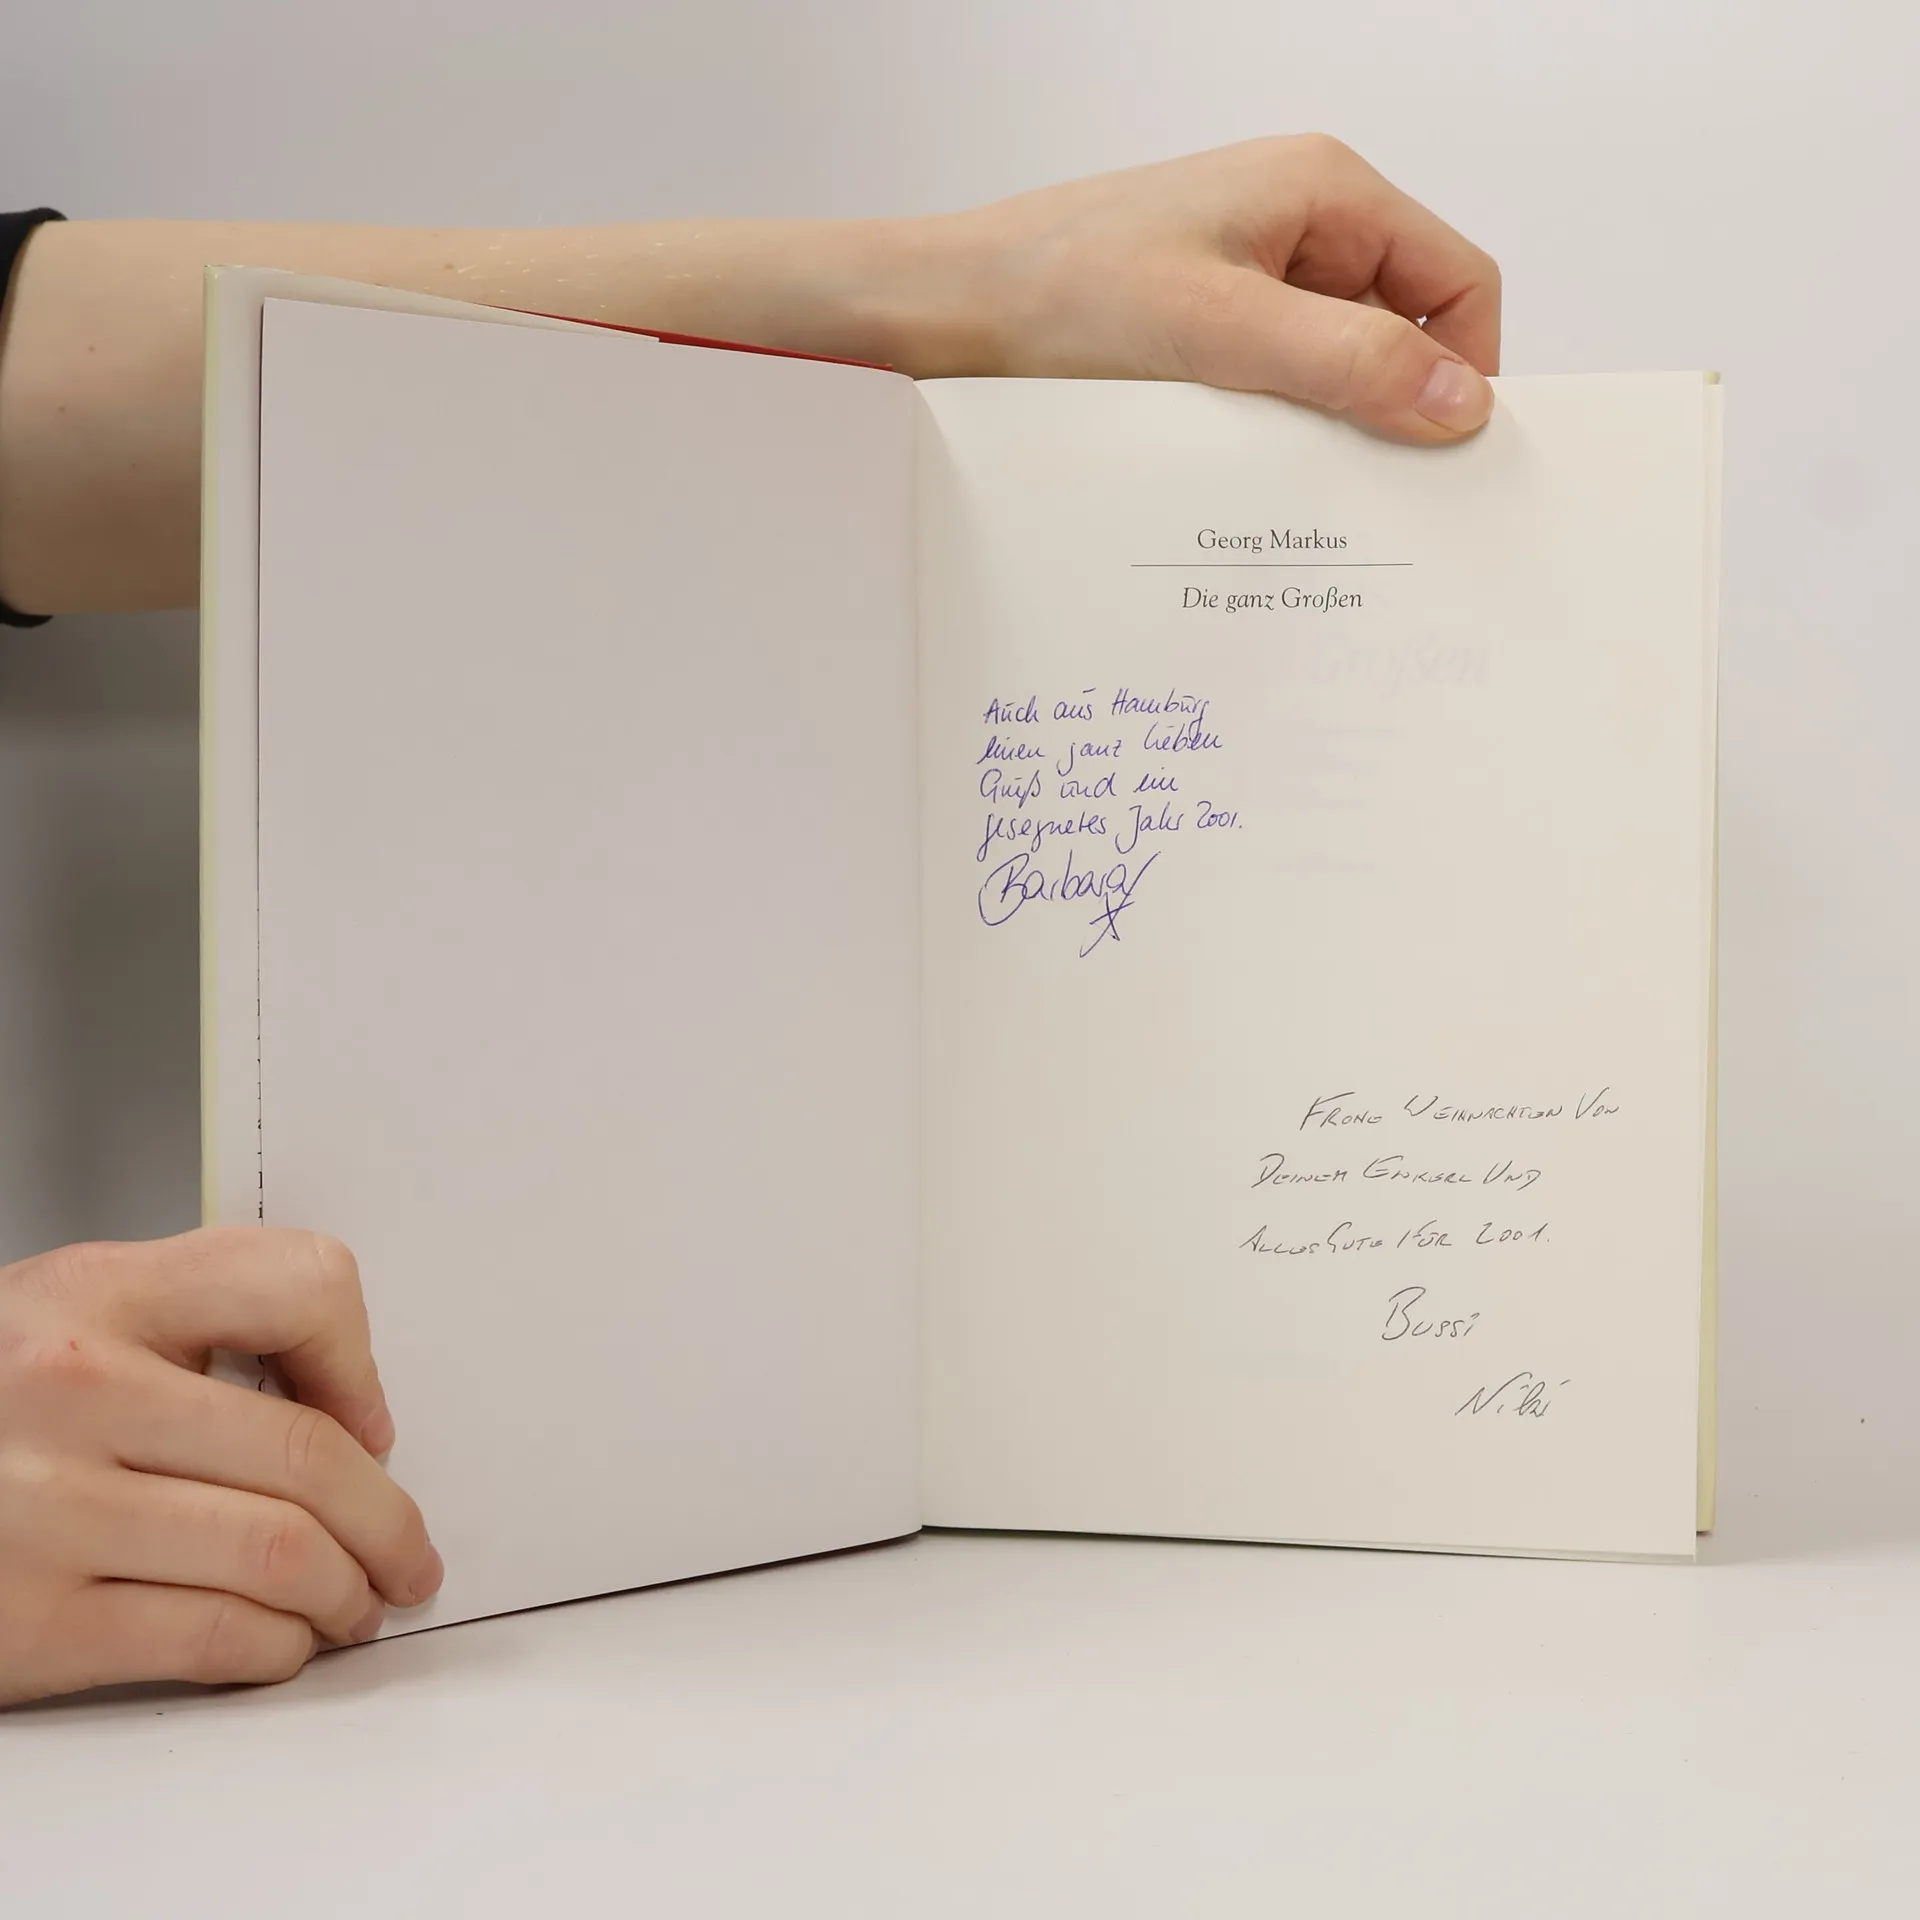 Georg Markus
Die ganz Großen
Auch aus Hamburg
einen ganz lieben
Gruß und ein
gesegnetes Jahr 2001.
Barbara
FROHE WEIHNACHTEN VON
DEINEM ENKERL UND
ALLES GUTE FÜR 2001.
BUSSI
Niki